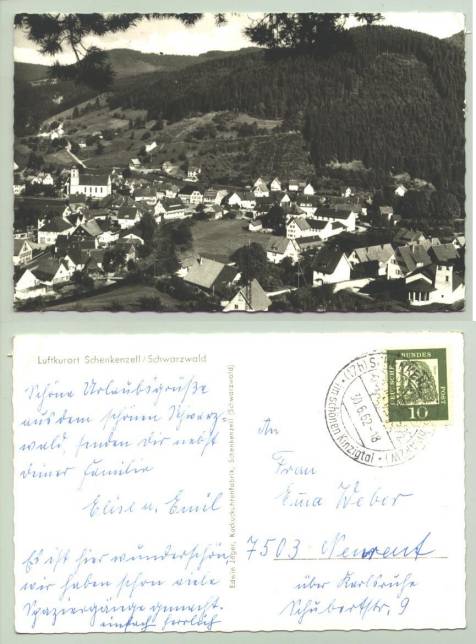 Luftkurort Schenkenzell/Schwarzwald
Schöne Urlaubsgrüße
aus dem schönen Schwarz-
wald, senden dir nebst
deiner Familie
Elise u. Emil
Es ist hier wunderschön
wir haben schon viele
Spaziergänge gemacht.
einfach herrlich
Edwin Jäger, Kuckucksuhrenfabrik, Schenkenzell (Schwarzwald)
An
Frau
Weber
7503 Neureut
über Karlsruhe
Schubertstr. 9
(17b)
30.6.62
im schönen Kinzigtal
BUNDES
POST
10